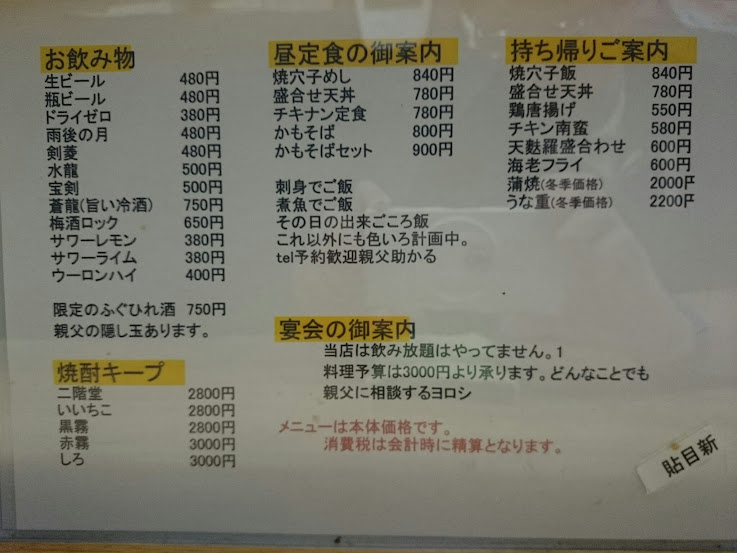 お飲み物
生ビール 480円
瓶ビール 480円
ドライゼロ 380円
雨後の月 480円
剣菱 480円
水龍 500円
宝剣 500円
蒼龍(旨い冷酒) 750円
梅酒ロック 650円
サワーレモン 380円
サワーライム 380円
ウーロンハイ 400円
限定のふぐひれ酒 750円
親父の隠し玉あります。
焼酎キープ
二階堂 2800円
いいちこ 2800円
黒霧 2800円
赤霧 3000円
しろ 3000円
昼定食の御案内
焼穴子めし 840円
盛合せ天丼 780円
チキナン定食 780円
かもそば 800円
かもそばセット 900円
刺身でご飯
煮魚でご飯
その日の出来ごころ飯
これ以外にも色いろ計画中。
tel予約歓迎親父助かる
持ち帰りご案内
焼穴子飯 840円
盛合せ天丼 780円
鶏唐揚げ 550円
チキン南蛮 580円
天麩羅盛合わせ 600円
海老フライ 600円
蒲焼(冬季価格) 2000円
うな重(冬季価格) 2200円
宴会の御案内
当店は飲み放題はやってません。1
料理予算は3000円より承ります。どんなことでも
親父に相談するヨロシ
メニューは本体価格です。
消費税は会計時に精算となります。
貼目新